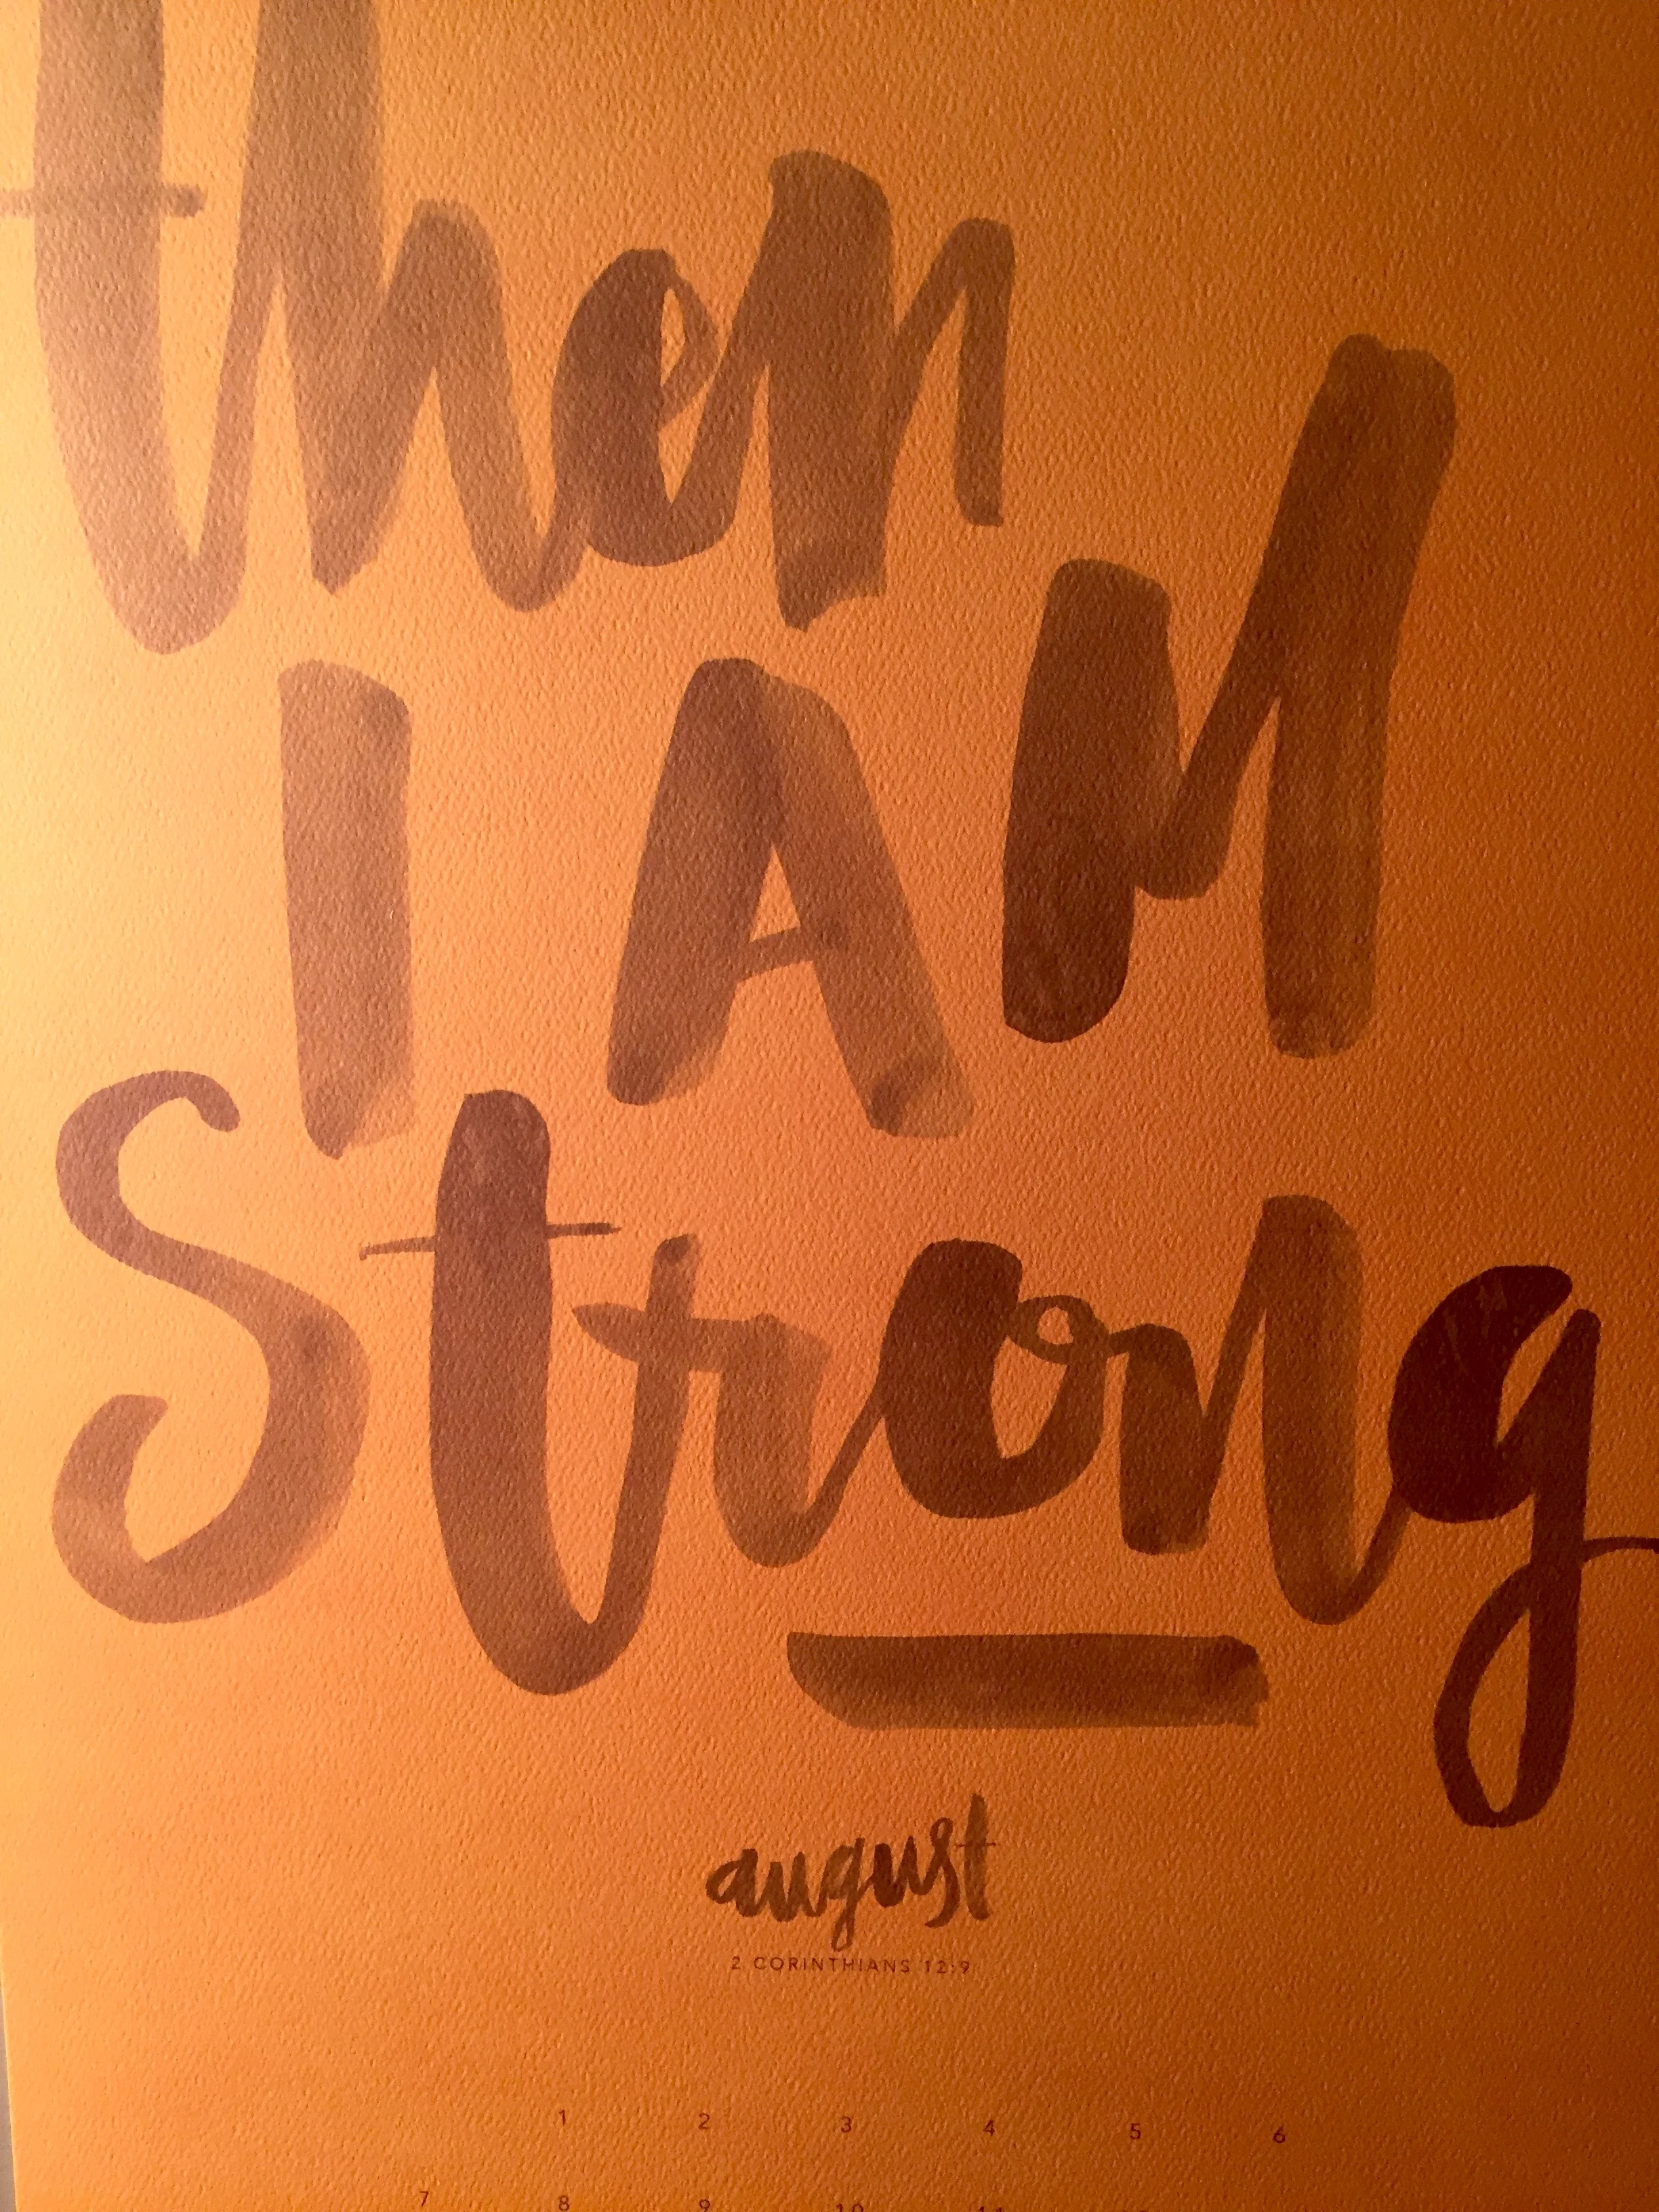 then
I AM
Strong
august
2 CORINTHIANS 12:9
1 2 3 4 5 6
7 8 9 10 11